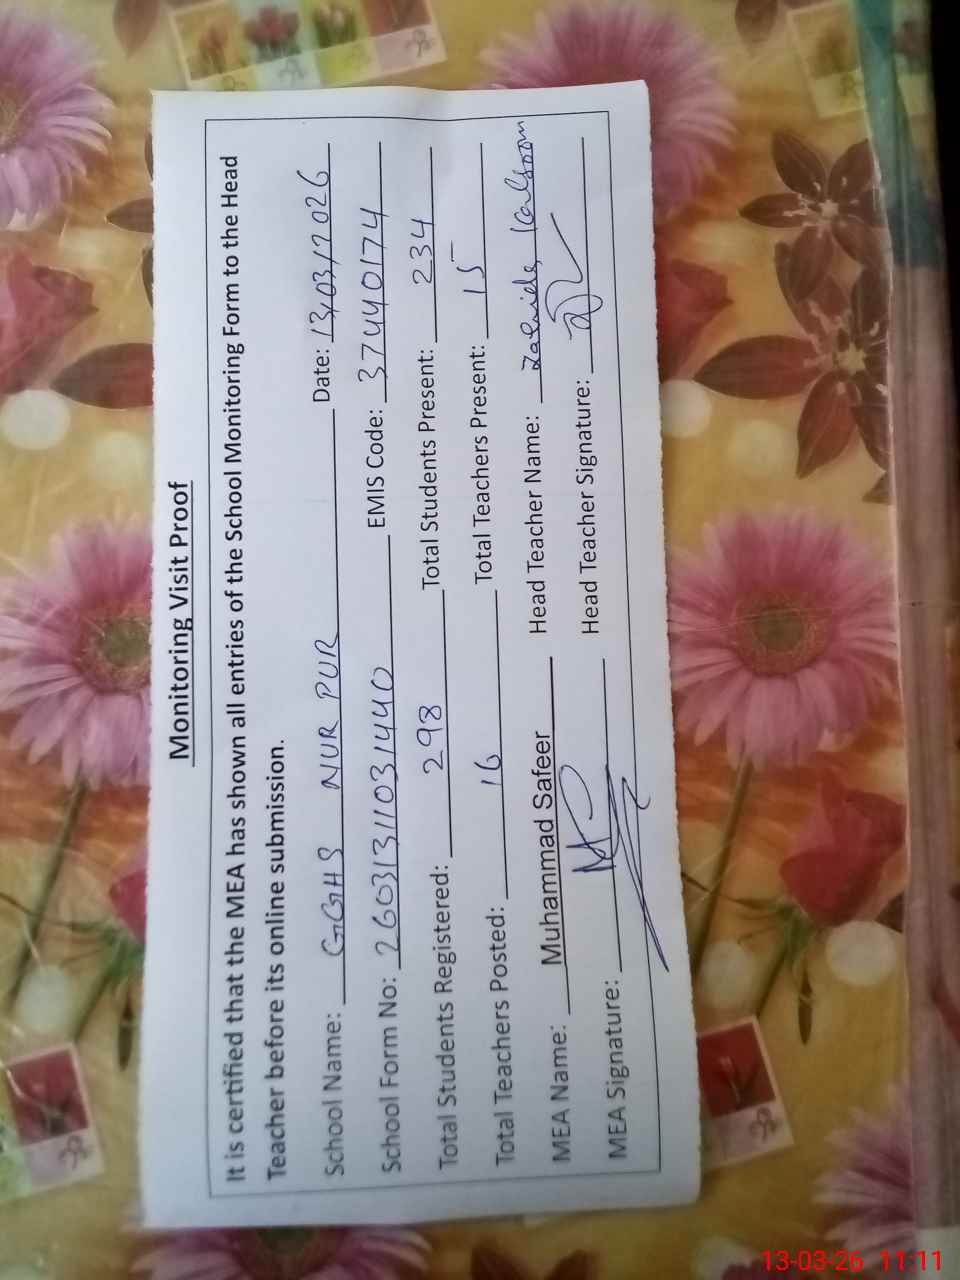 Monitoring Visit Proof
It is certified that the MEA has shown all entries of the School Monitoring Form to the Head
Teacher before its online submission.
School Name: GGHS NUR PUR Date: 13/03/2026
School Form No: 26031311031440 EMIS Code: 37440174
Total Students Registered: 298 Total Students Present: 234
Total Teachers Posted: 16 Total Teachers Present: 15
MEA Name: Muhammad Safeer Head Teacher Name: Zahida Kalsoom
MEA Signature: Head Teacher Signature:
13-03-26 11:11